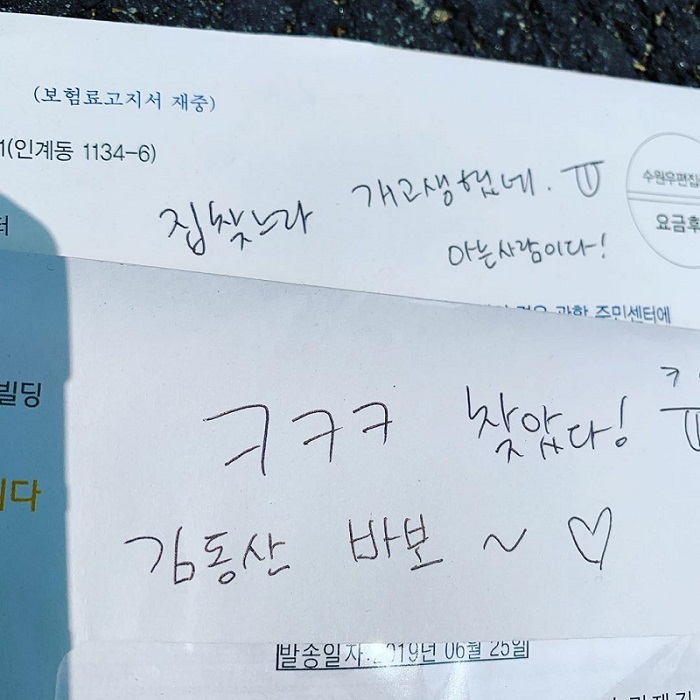 (보험료고지서 재중)
1(인계동 1134-6)
집찾느라 개고생했네. ㅠ
아는사람이다!
수원우편집
요금후
터
관할 주민센터에
빌딩
ㅋㅋㅋ 찾았다! ㅠ
다
김동산 바보 ~ ♡
발송일자: 2019년 06월 25일